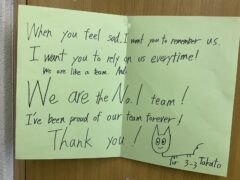 When you feel sad, I want you to remember us.
I want you to rely on us everytime!
We are like a team. And
We are the No.1 team!
I've been proud of our team forever!
Thank you!
for 3-3 Takato